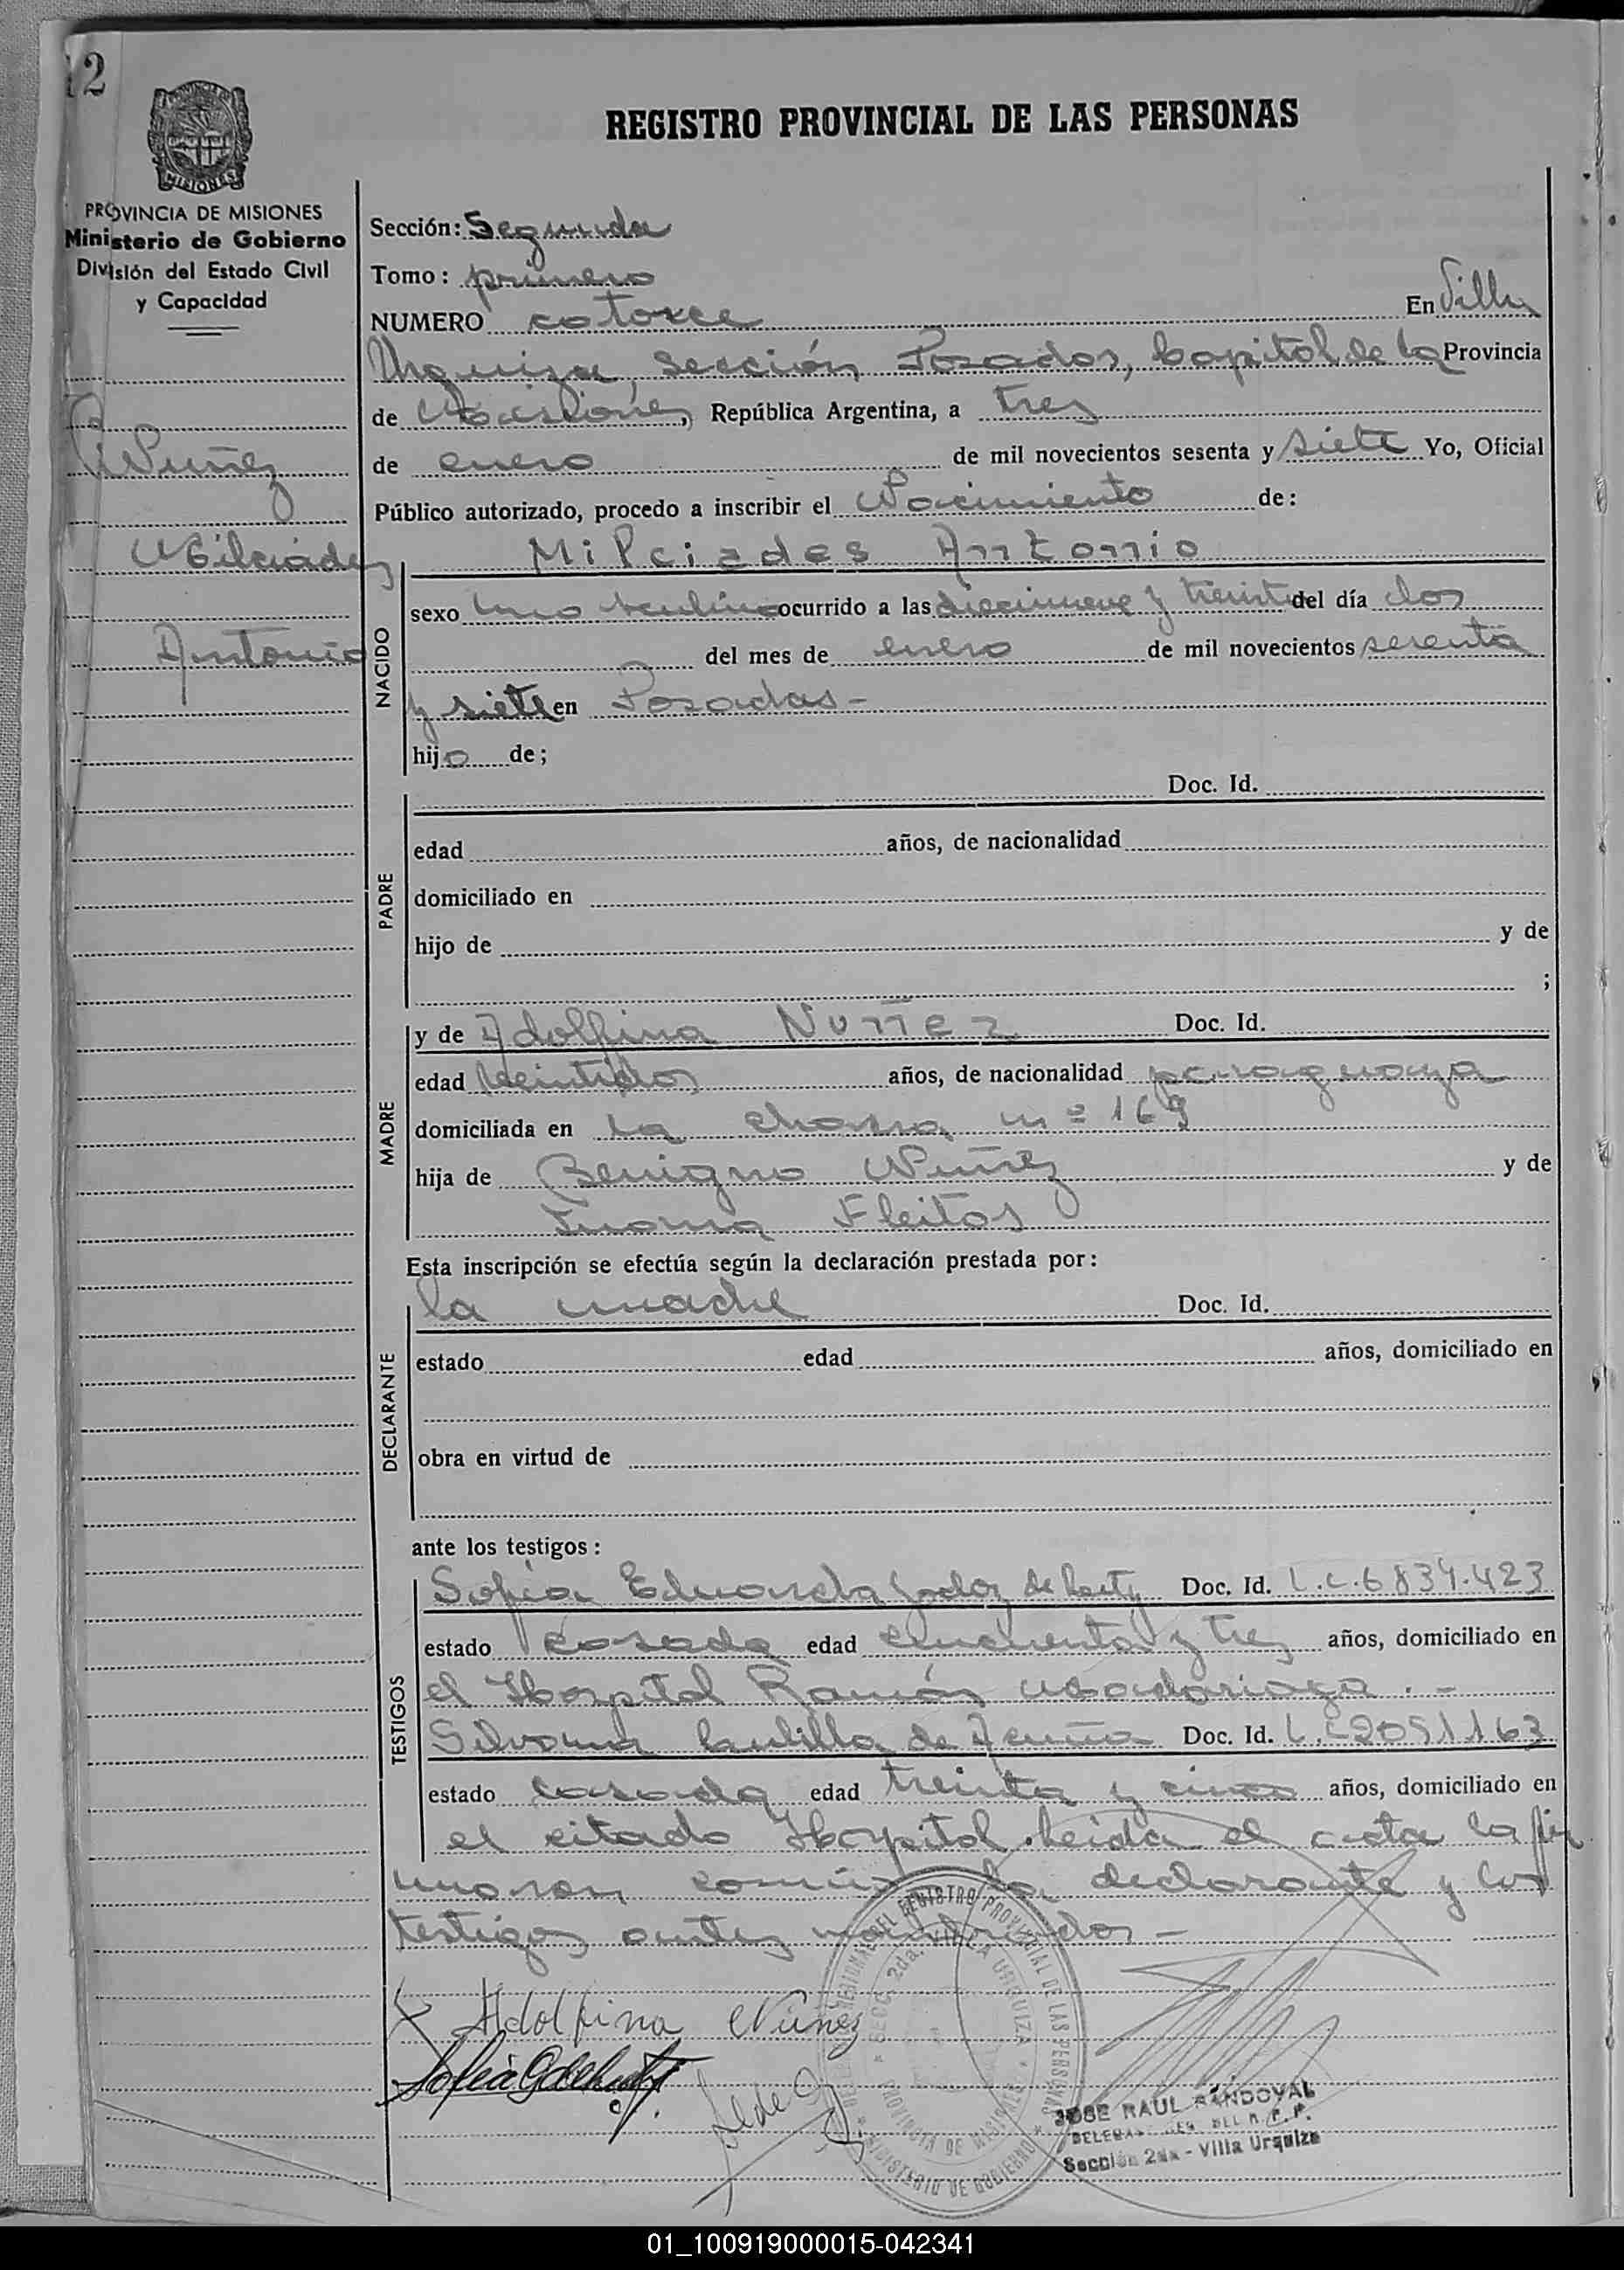 12
REGISTRO PROVINCIAL DE LAS PERSONAS
PROVINCIA DE MISIONES
Ministerio de Gobierno
División del Estado Civil
y Capacidad
Nuñez
Milciades
Antonio
Sección: Segunda
Tomo: primero
NUMERO catorce En Villa
Urquiza, Sección Posadas, Capital de la Provincia
de Misiones, República Argentina, a tres
de enero de mil novecientos sesenta y siete Yo, Oficial
Público autorizado, procedo a inscribir el Nacimiento de:
Milciades Antonio
NACIDO
sexo masculino ocurrido a las diecinueve y treinta del día dos
del mes de enero de mil novecientos sesenta
y siete en Posadas -
hijo de;
PADRE
Doc. Id.
edad años, de nacionalidad
domiciliado en
hijo de y de
;
MADRE
y de Adolfina Nuñez Doc. Id.
edad veintidos años, de nacionalidad paraguaya
domiciliada en la chacra nº 169
hija de Benigno Nuñez y de
Juana Fleitas
Esta inscripción se efectúa según la declaración prestada por:
DECLARANTE
la madre Doc. Id.
estado edad años, domiciliado en
obra en virtud de
ante los testigos:
TESTIGOS
Sofía Eduarda Godoy de Doc. Id. L.C. 6834.423
estado casada edad cincuenta y tres años, domiciliado en
el Hospital Ramón Madariaga . -
Silvana de Acuña Doc. Id. L.C 2051163
estado casada edad treinta y cinco años, domiciliado en
el citado Hospital. Leida el acta la fir
maron conmigo la declarante y los
testigos antes nombrados -
Adolfina Nuñez
DELEGACION REGIONAL DEL REGISTRO PROVINCIAL DE LAS PERSONAS
SECC. 2da. VILLA URQUIZA
PROVINCIA DE MISIONES
MINISTERIO DE GOBIERNO
JOSE RAUL SANDOVAL
Sección 2da - Villa Urquiza
01_100919000015-042341